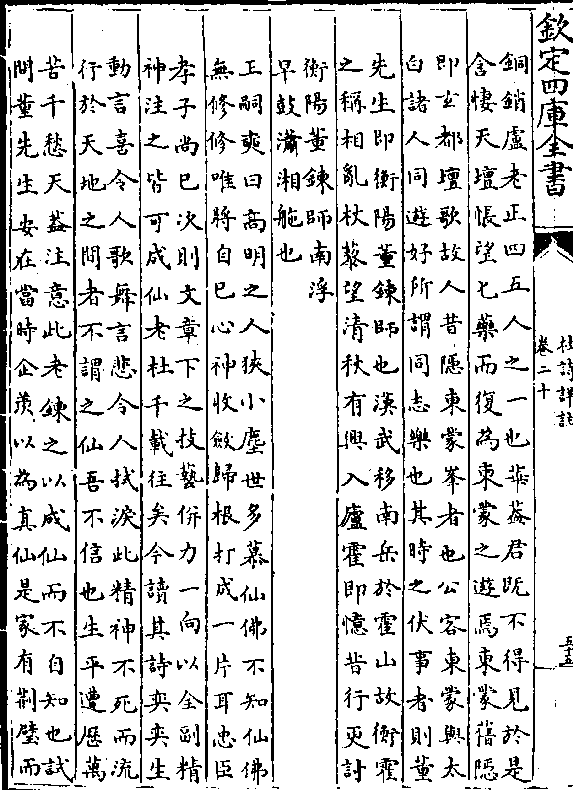 欽定四庫全書
杜詩詳註
卷二十
五十五
銅銷盧老正四五人之一也華葢君既不得見於是
含悽天壇悵望七藥而復為東蒙之遊焉東蒙舊隠
即玄都壇歌故人昔隠東蒙峯者也公客東蒙與太
白諸人同遊好所謂同志樂也其時之伏事者則董
先生即衡陽董鍊師也漢武移南岳於霍山故衡霍
之稱相亂杖藜望清秋有興入廬霍即憶昔行更討
衡陽董鍊師南浮
早鼓瀟湘柂也
王嗣奭曰高明之人狹小塵世多慕仙佛不知仙佛
無修修唯將自已心神收斂歸根打成一片耳忠臣
孝子尚已次則文章下之技藝併力一向以全副精
神注之皆可成仙老杜千載往矣今讀其詩奕奕生
動言喜令人歌舞言悲令人拭淚此精神不死而流
行於天地之間者不謂之仙吾不信也生平遭歴萬
苦千愁天葢注意此老鍊之以成仙而不自知也試
問董先生安在當時企羨以為真仙是家有荆璧而